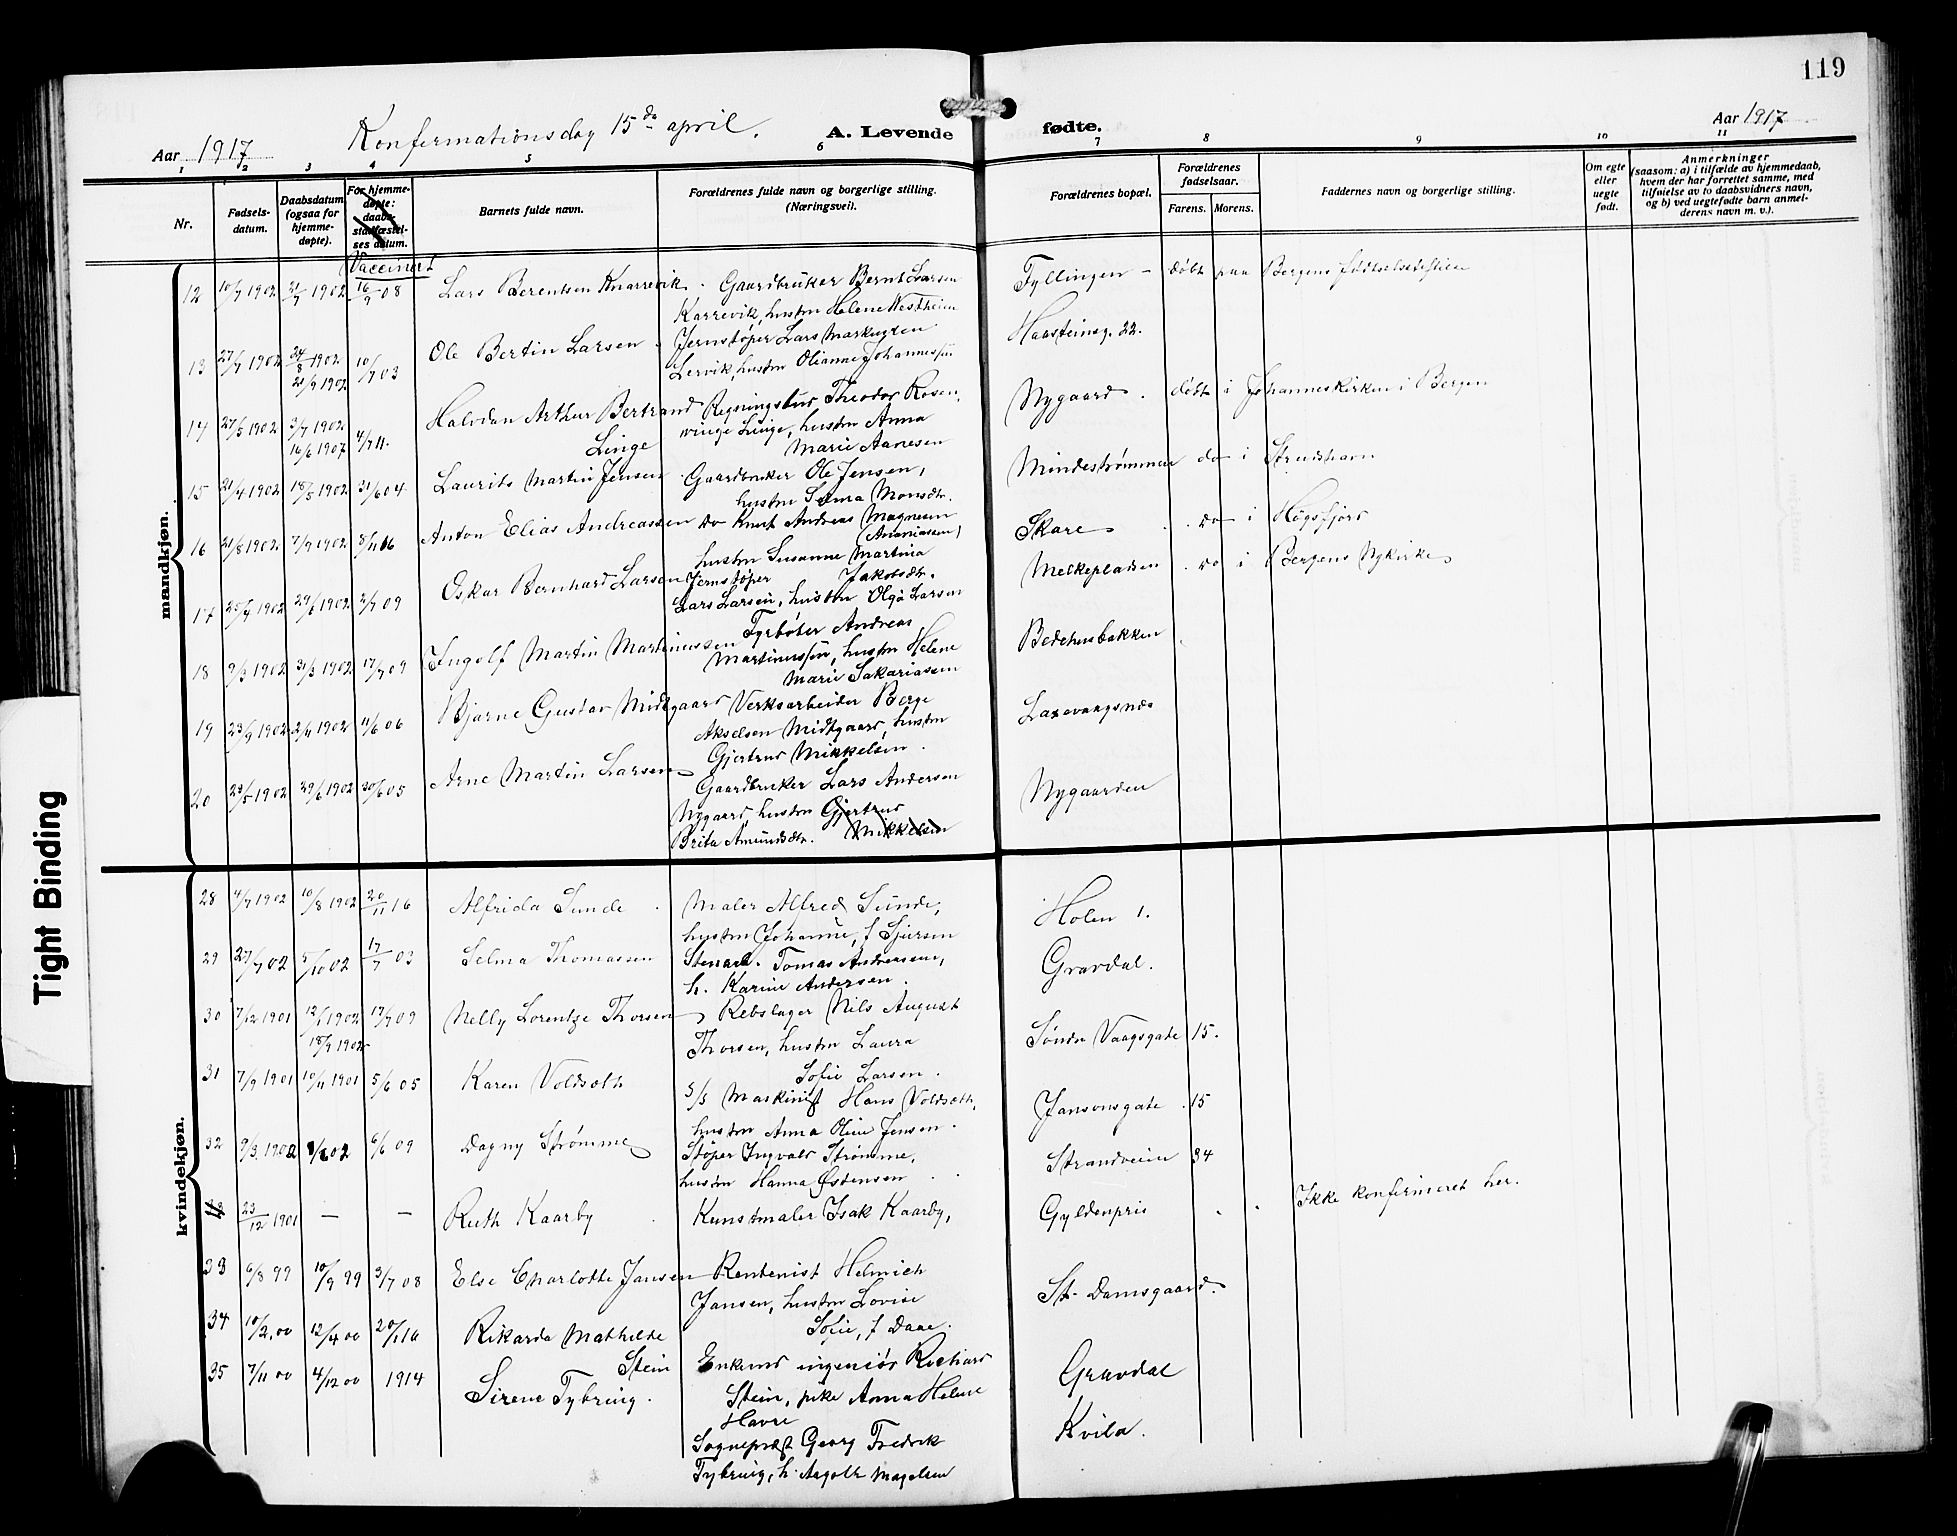 119
Konfirmationsdag 15de april.
Aar 1917
A. Levende fødte.
Aar 1917
1 2 3 4 5 6 7 8 9 10 11
Nr.
Fødsels-
datum.
Daabsdatum
(ogsaa for
hjemme-
døpte).
For hjemme-
døpte:
daabs-
stadfæstel-
ses datum.
Vaccinert
Barnets fulde navn.
Forældrenes fulde navn og borgerlige stilling.
(Næringsvei).
Forældrenes bopæl.
Forældrenes
fødselsaar.
Farens. Morens.
Faddernes navn og borgerlige stilling.
Om egte
eller
uegte
født.
Anmerkninger
(saasom: a) i tilfælde av hjemmedaab,
hvem der har forrettet samme, med
tilføielse av to daabsvidners navn,
og b) ved uegtefødte barn anmel-
derens navn m. v.).
mandkjøn.
12 10/7 1902 31/7 1902 16/9 08 Lars Berentsen Knarrevik. Gaardbruker Bernt Larsen Fyllingen – døbt paa Bergens fødselsstiftelse
Karrevik, hustru Helene Westheim
13 27/7 1902 24/8 1902 10/7 03 Ole Bertin Larsen. Jernstøper Lars Markussen Haasteinsg. 22.
21/9 1902 Lervik, hustru Olianne Johannessen
14 27/5 1902 3/7 1902 4/7 11. Halvdan Arthur Bertrand Regningsfør Theodor Rosen- Nygaard. døbt i Johanneskirken i Bergen
16/6 1907 Linge vinge Linge, hustru Anna
Marie Aanesen
15 21/4 1902 18/5 1902 31/6 04 Laurits Martin Jensen. Gaardbruker Ole Jensen, Mindestrømmen do i Strudshavn
hustru Selma Monsdtr.
16 21/8 1902 7/9 1902 8/11 16 Anton Elias Andreassen do Knut Andreas Magnesen Skare do i Høgsfjord
(Ananiassen)
hustru Susanne Martina
Jakobsdtr.
17 25/4 1902 29/6 1902 2/7 09 Oskar Bernhard Larsen Jernstøper Melkepladsen do i Bergens Nykirke
Lars Larsen, hustru Olga Larsen
18 9/3 1902 31/3 1902 17/7 09 Ingolf Martin Martinussen Fyrbøter Andreas Bedehusbakken
Martinussen, hustru Helene
Marie Sakariassen
19 23/9 1902 2/11 1902 11/6 06 Bjarne Gustav Midtgaard Verksarbeider Børge Laxevaagsnes
Akselsen Midtgaard, hustru
Gjertrud Mikkelsen.
20 23/5 1902 29/6 1902 30/6 05 Arne Martin Larsen Gaardbruker Lars Andersen Nygaarden
Nygaard, hustru Gjertrud
Brita Amundsdtr. Mikkelsen
kvindekjøn.
28 4/7 1902 10/8 1902 20/11 16 Alfrida Sunde. Maler Alfred Sunde, Holen 1.
hustru Johanne, f Sjursen
29 27/7 02 5/10 02 17/7 03 Selma Thomassen Stenarb. Tomas Andreassen, Gravdal.
h. Karine Andersen.
30 7/12 1901 12/1 1902 17/7 09 Nelly Lorentze Thorsen Rebslager Nils August Søndr Vaagsgate 15.
18/9 1902 Thorsen, hustru Laura
Sofie Larsen.
31 7/9 1901 10/11 1901 5/6 05 Karen Voldseth S/S Maskinist Hans Voldseth, Jansonsgate 15
hustru Anna Oline Jensen.
32 9/3 1902 1/6 02 6/6 09 Dagny Strømme Støper Ingvald Strømme, Strandveien 34
hustru Hanna Østensen
23/12 1901 — — Ruth Kaarby Kunstmaler Isak Kaarby, Gyldenpris Ikke konfirmeret her.
33 6/8 99 10/9 99 3/7 08 Else Charlotte Jansen Rentenist Helmich St. Damsgaard.
Jansen, hustru Lovise
Sofie, f Daae.
34 10/2 00 12/4 00 20/1 16 Rikarda Mathilde Enkemd ingeniør Richard Gravdal
Stein Stein, pike Anna Helene
Havre
35 7/11 00 4/12 00 1914 Sirene Tybring. Sogneprest Georg Fredrik Kvila.
Tybring, h. Aagoth Magelsen
Tight Binding